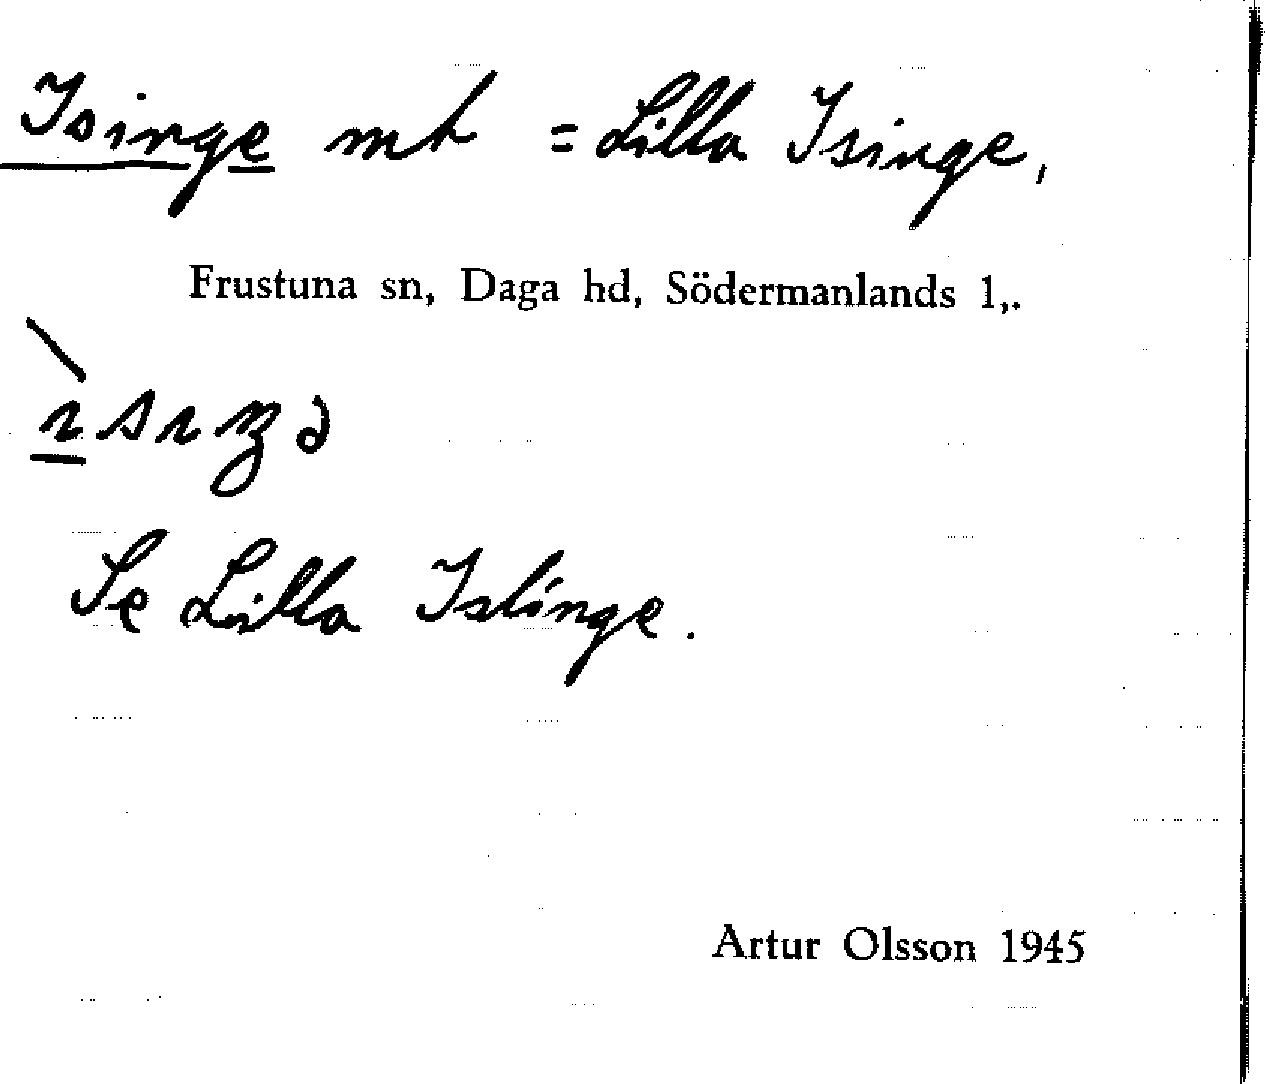 Isinge mh = Lilla Isinge,
Frustuna sn, Daga hd, Södermanlands l,.
Se Lilla Islinge.
Artur Olsson 1945